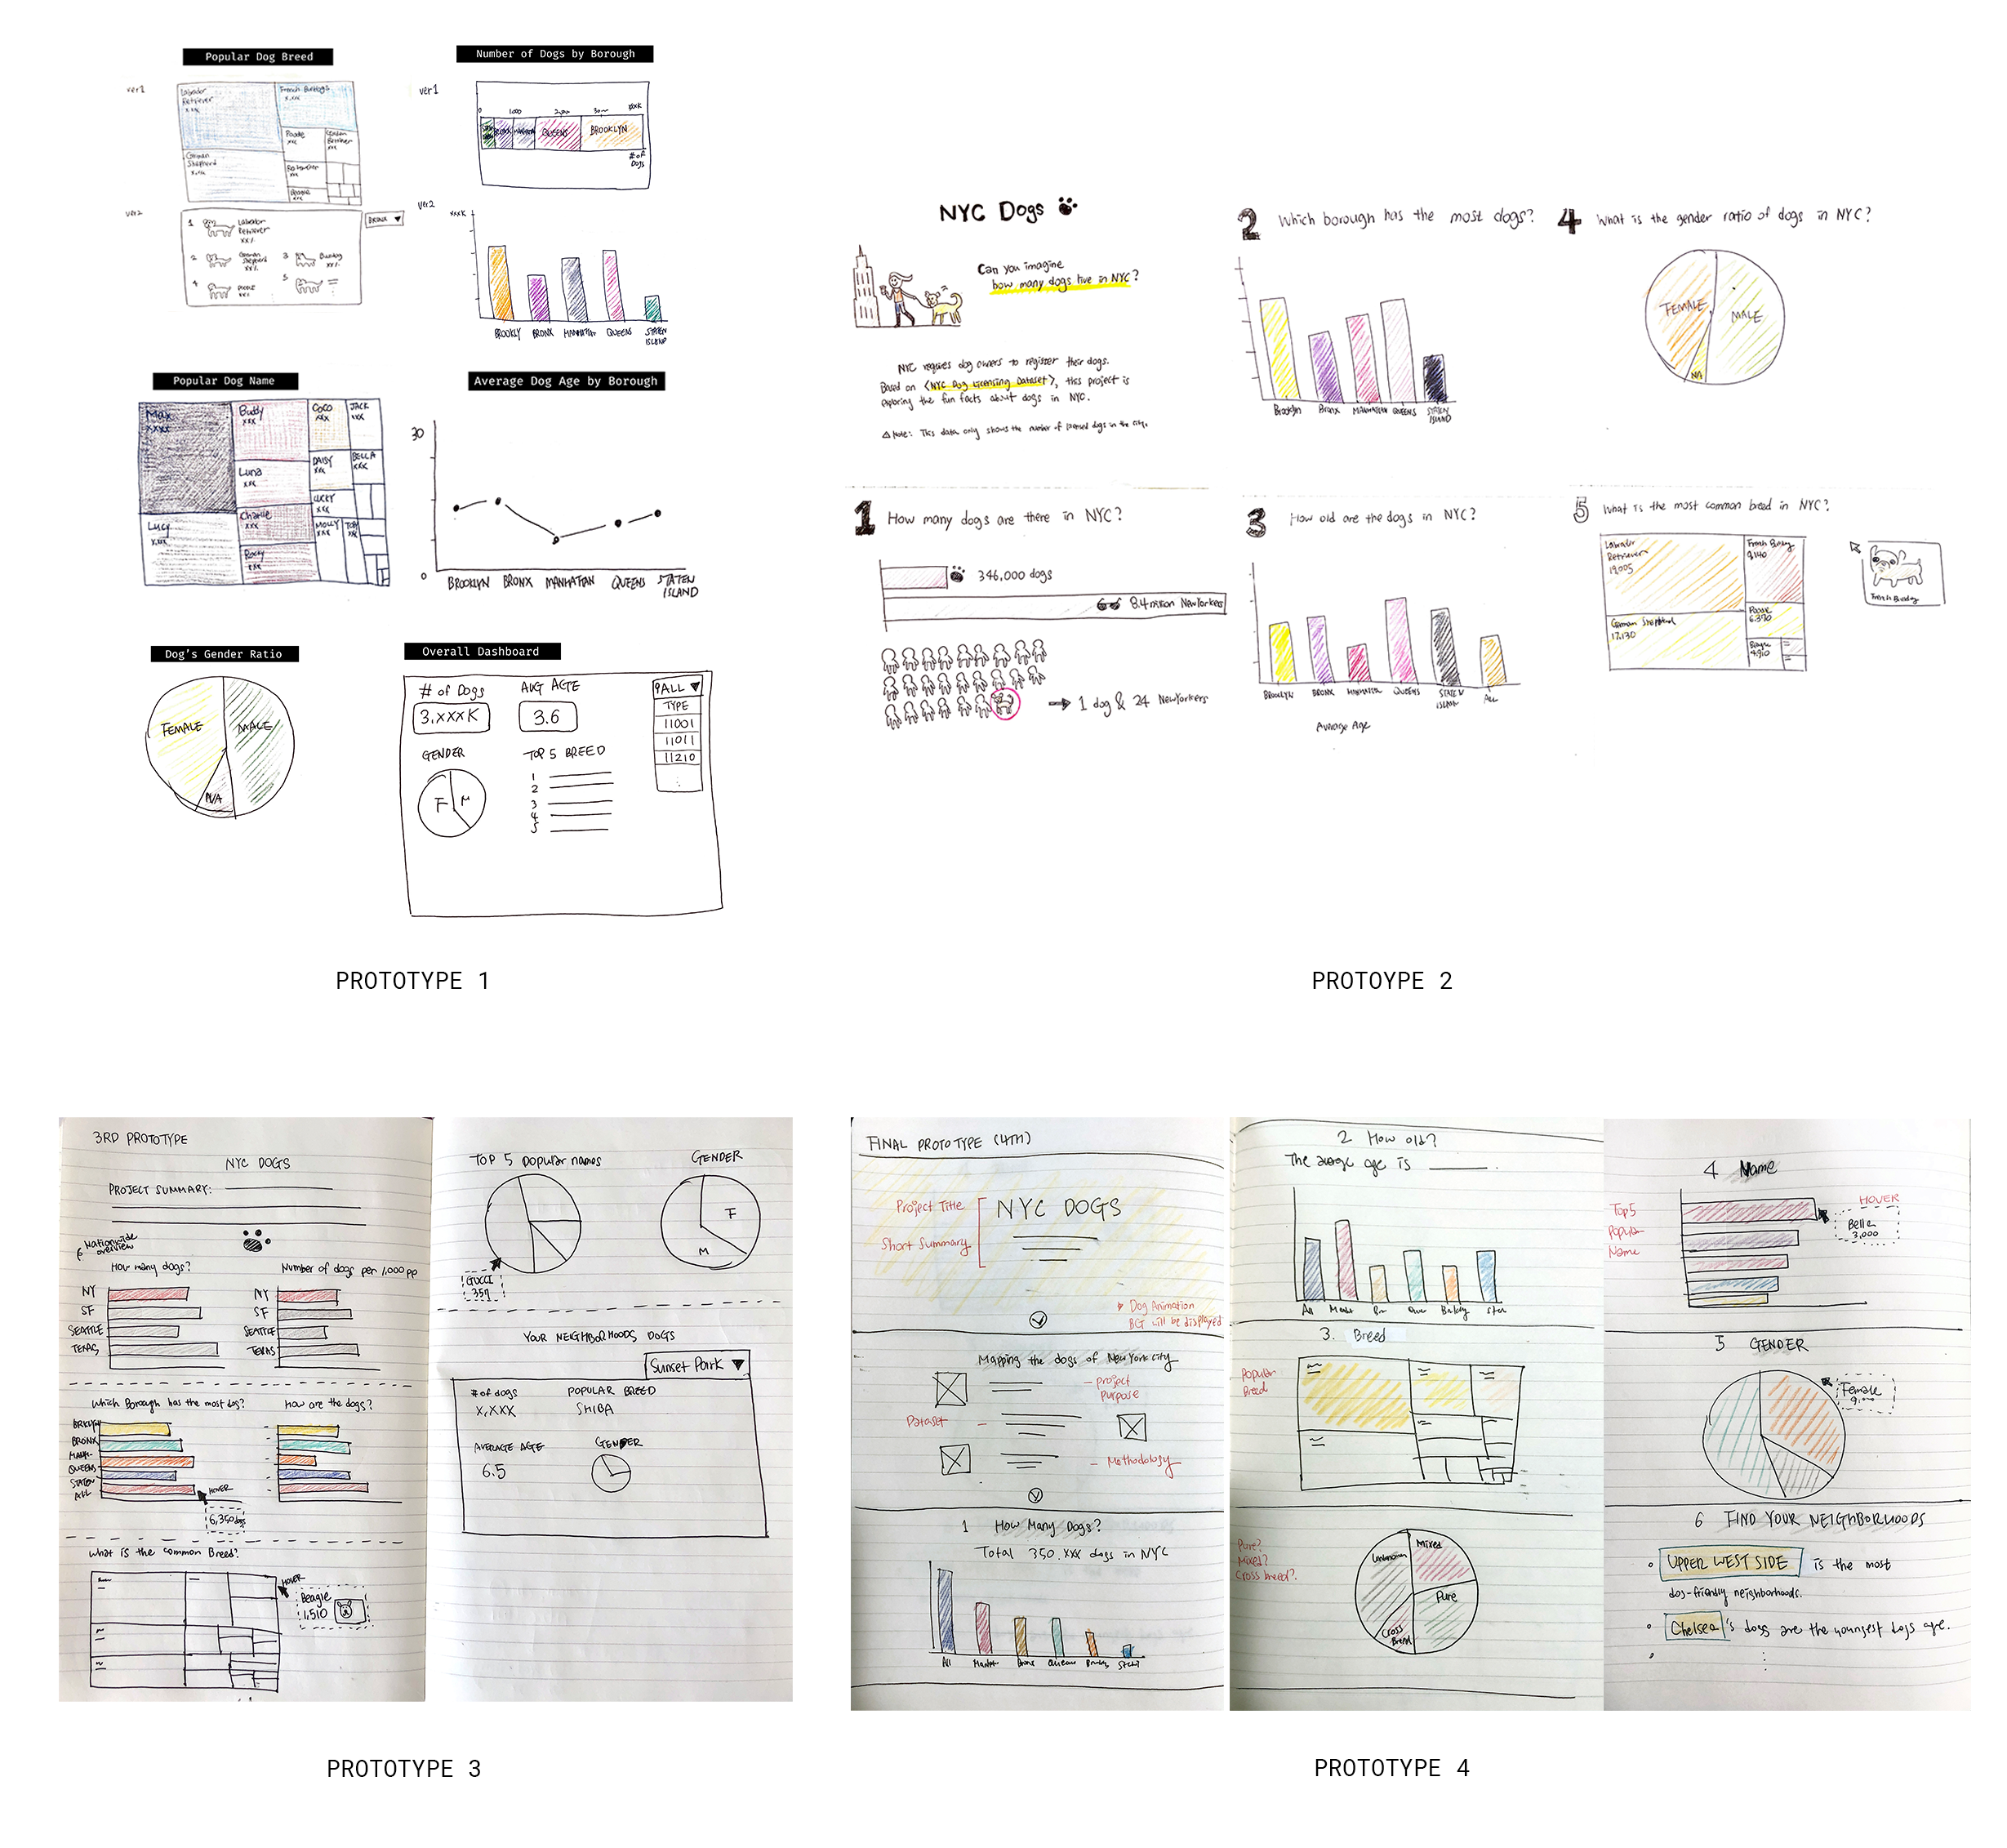 Popular Dog Breed
ver1
Labrador
Retriever
x.xx
French Bulldogs
x.xx
Poodle
xxx
German
Shepherd
x.xx
ver2
1
Labrador
Retriever
xx%
BRONX ▼
2
German
Shepherd
xx%
3
Bulldog
xx%
4
5
Number of Dogs by Borough
ver1
0
1000
QUEENS
BROOKLYN
# of
Dogs
ver2
xxxK
BROOKLY
BRONX
MANHATTAN
QUEENS
STATEN
ISLAND
Popular Dog Name
Max
xxxx
Buddy
xxx
COCO
xxx
JACK
xxx
Luna
xxx
DAISY
xxx
BELLA
xxx
LUCKY
xxx
Lucy
x.xxx
Charlie
xxx
MOLLY
xxx
TOBY
xx
Rocky
xxx
Average Dog Age by Borough
30
0
BROOKLYN
BRONX
MANHATTAN
QUEENS
STATEN
ISLAND
Dog's Gender Ratio
FEMALE
MALE
N/A
Overall Dashboard
# of Dogs
3.xxxK
AVG AGE
3.6
ALL ▼
TYPE
11001
11011
11210
GENDER
F
M
TOP 5 BREED
1
2
3
4
5
PROTOTYPE 1
NYC Dogs
Can you imagine
how many dogs live in NYC?
NYC requires dog owners to register their dogs.
Based on <NYC Dog Licensing Dataset>, this project is
exploring the fun facts about dogs in NYC.
△ Note: This data only shows the number of licensed dogs in the city.
1 How many dogs are there in NYC?
346,000 dogs
8.4 million NewYorkers
→ 1 dog & 24 NewYorkers
2 Which borough has the most dogs?
Brooklyn
Bronx
MANHATTAN
QUEENS
STATEN
ISLAND
3 How old are the dogs in NYC?
BROOKLYN
BRONX
MANHATTAN
QUEENS
STATEN
ISLAND
ALL
Average Age
4 What is the gender ratio of dogs in NYC?
FEMALE
MALE
NA
5 What is the most common breed in NYC?
Labrador
Retriever
19,005
French Bulldog
9,140
German Shepherd
17,130
Poodle
6,370
Beagle
4,910
French Bulldog
PROTOYPE 2
3RD PROTOTYPE
NYC DOGS
PROJECT SUMMARY:
Nationwide
overview
How many dogs?
NY
SF
SEATTLE
TEXAS
Number of dogs per 1,000 pp
NY
SF
SEATTLE
TEXAS
Which Borough has the most dog?
BRKLYN
BRONX
MANH-
QUEENS
STATEN
ALL
HOVER
6,350 dogs
How are the dogs?
What is the common Breed?
HOVER
Beagle
1,510
TOP 5 popular names
GUCCI
357
GENDER
F
M
YOUR NEIGHBORHOODS DOGS
Sunset Park ▼
# of dogs
X,XXX
POPULAR BREED
SHIBA
AVERAGE AGE
6.5
GENDER
PROTOTYPE 3
FINAL PROTOTYPE (4TH)
Project Title
Short Summary
NYC DOGS
Dog Animation
BCT will be displayed
Mapping the dogs of New York city
- project
purpose
Dataset -
- Methodology
1 How Many Dogs?
Total 350.xxx dogs in NYC
All
Manhat
Bronx
Queens
2 How old?
The avrage age is
All
Manht
Br
Que
Sten
3. Breed
Popular
Breed
Pure?
Mixed?
Cross breed?
Unknown
Mixed
Pure
Cross
Bred
4 Name
Top 5
Popular
Name
HOVER
Bella
3,000
5 GENDER
Female
6 FIND YOUR NEIGHBORHOODS
UPPER WEST SIDE is the most
dog-friendly neighborhoods.
Chelsea's dogs are the youngest dogs age.
PROTOTYPE 4